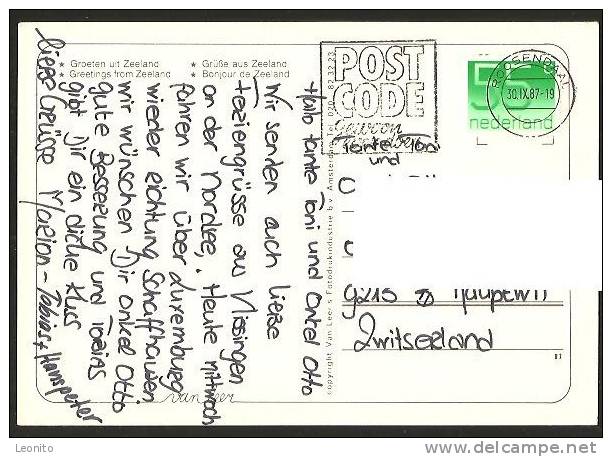 ★ Groeten uit Zeeland
★ Greetings from Zeeland
★ Grüße aus Zeeland
★ Bonjour de Zeeland
Hallo Tante Toni und Onkel Otto
Wir senden auch liebe
Feriengrüsse aus Vlissingen
an der Nordsee. Heute mittwoch
fahren wir über Luxemburg
wieder richtung Schaffhausen
wir wünschen Dir onkel Otto
gute Besserung und Tobias
gibt Dir ein dicke Kuss
liebe Grüsse Marion-Tobias + Hanspeter
van leer
copyright Van Leer's Fotodrukindustrie b.v. Amsterdam Tel 020
POST
CODE
gewoon
55
nederland
ROOSENDAAL
30.IX.87-19
Tante Toni
und
9213 Hauptwil
Zwitserland
Leonito
www.delcampe.net